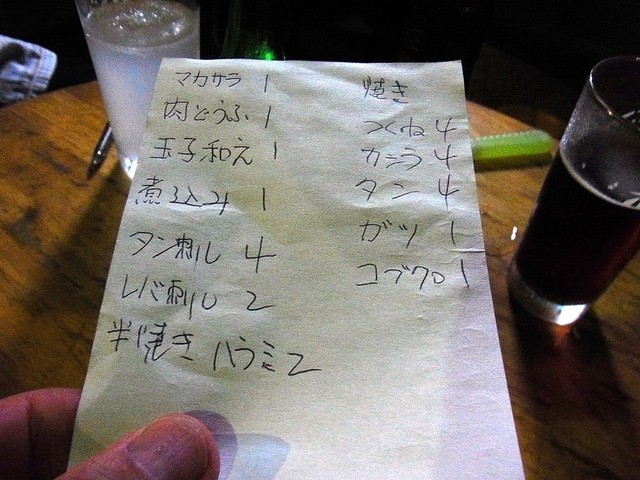 マカサラ 1
肉どうふ 1
玉子和え 1
煮込み 1
タン刺し 4
レバ刺し 2
半焼き ハラミ 2
焼き
つくね 4
カシラ 4
タン 4
ガツ 1
コブクロ 1